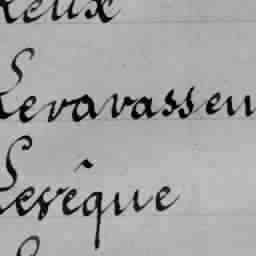 reux
Levavasseu
Levêque